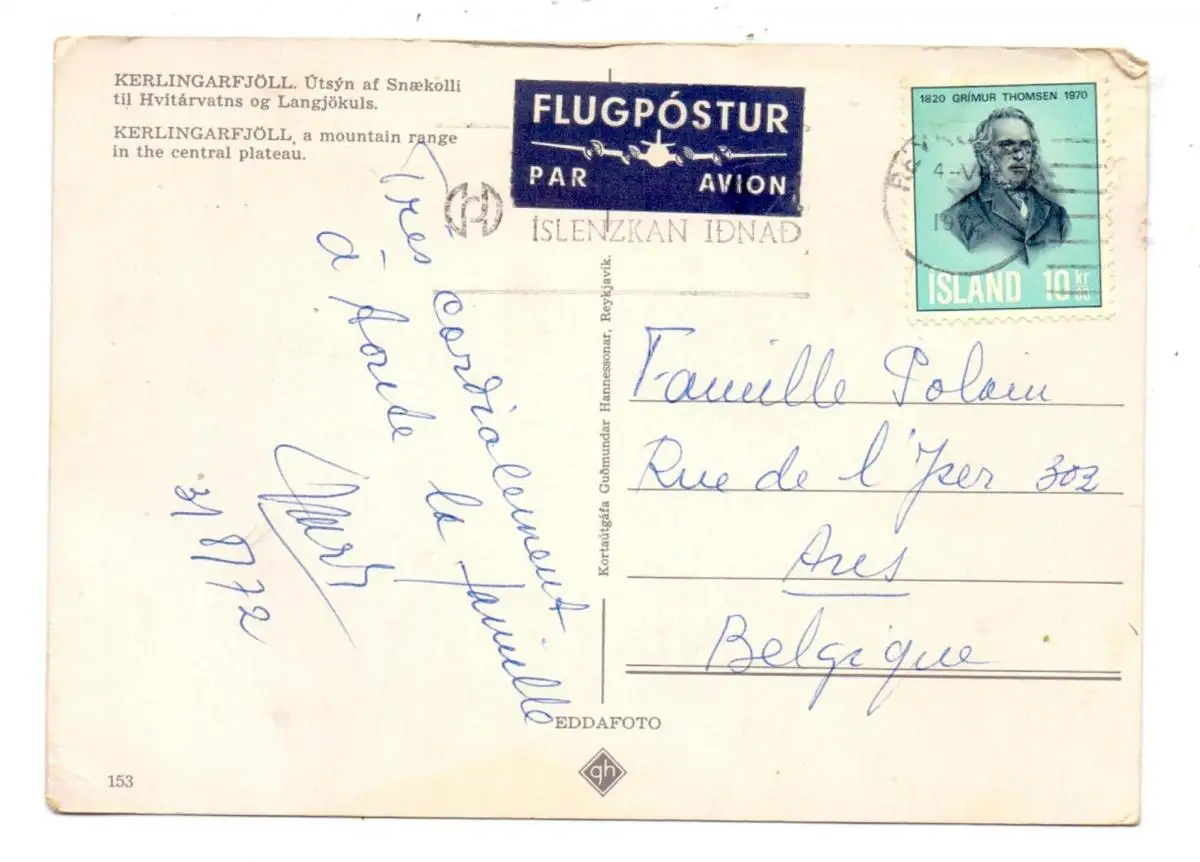 KERLINGARFJÖLL. Útsýn af Snækolli
til Hvítárvatns og Langjökuls.
KERLINGARFJÖLL, a mountain range
in the central plateau.
FLUGPÓSTUR
PAR AVION
ÍSLENZKAN IÐNAÐ
1820 GRÍMUR THOMSEN 1970
ÍSLAND 10 kr
00
Très cordialement
à toute la famille
31/8/72
Kortaútgáfa Guðmundar Hannessonar, Reykjavík.
Famille Polain
Rue de l'Yser 302
Ans
Belgique
EDDAFOTO
gh
153